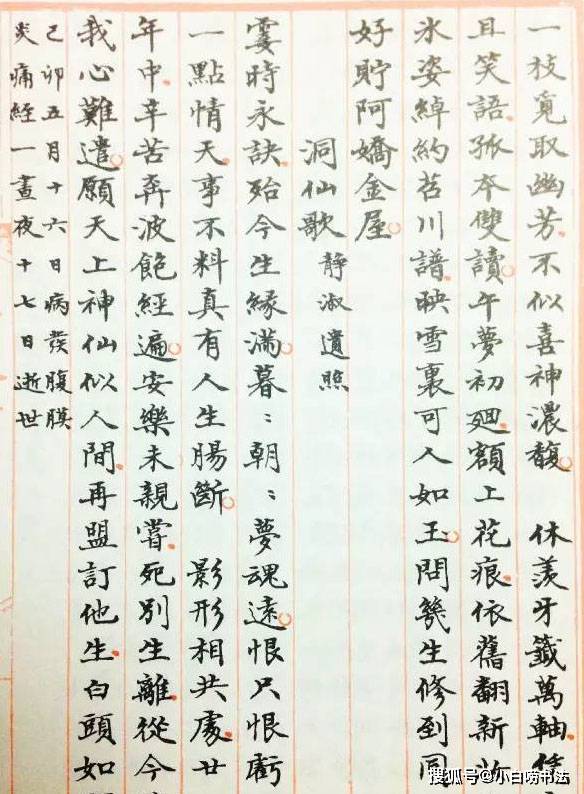 一枝覓取幽芳不似喜神濃馥 休羨牙籤萬軸
且笑語孤本雙讀午夢初廻額上花痕依舊翻新
氷姿綽約苕川譜映雪裏可人如玉問幾生修到圓
好貯阿嬌金屋
洞仙歌 靜淑遺照
霎時永訣殆今生緣滿暮〻朝〻夢魂遠恨只恨虧
一點情天事不料真有人生腸斷 影形相共處廿
年中辛苦奔波飽經遍安樂未親嘗死別生離從今
我心難遣願天上神仙似人間再盟訂他生白頭如
己卯五月十六日病發腹膜
炎痛經一晝夜十七日逝世
搜狐号@小白唠书法